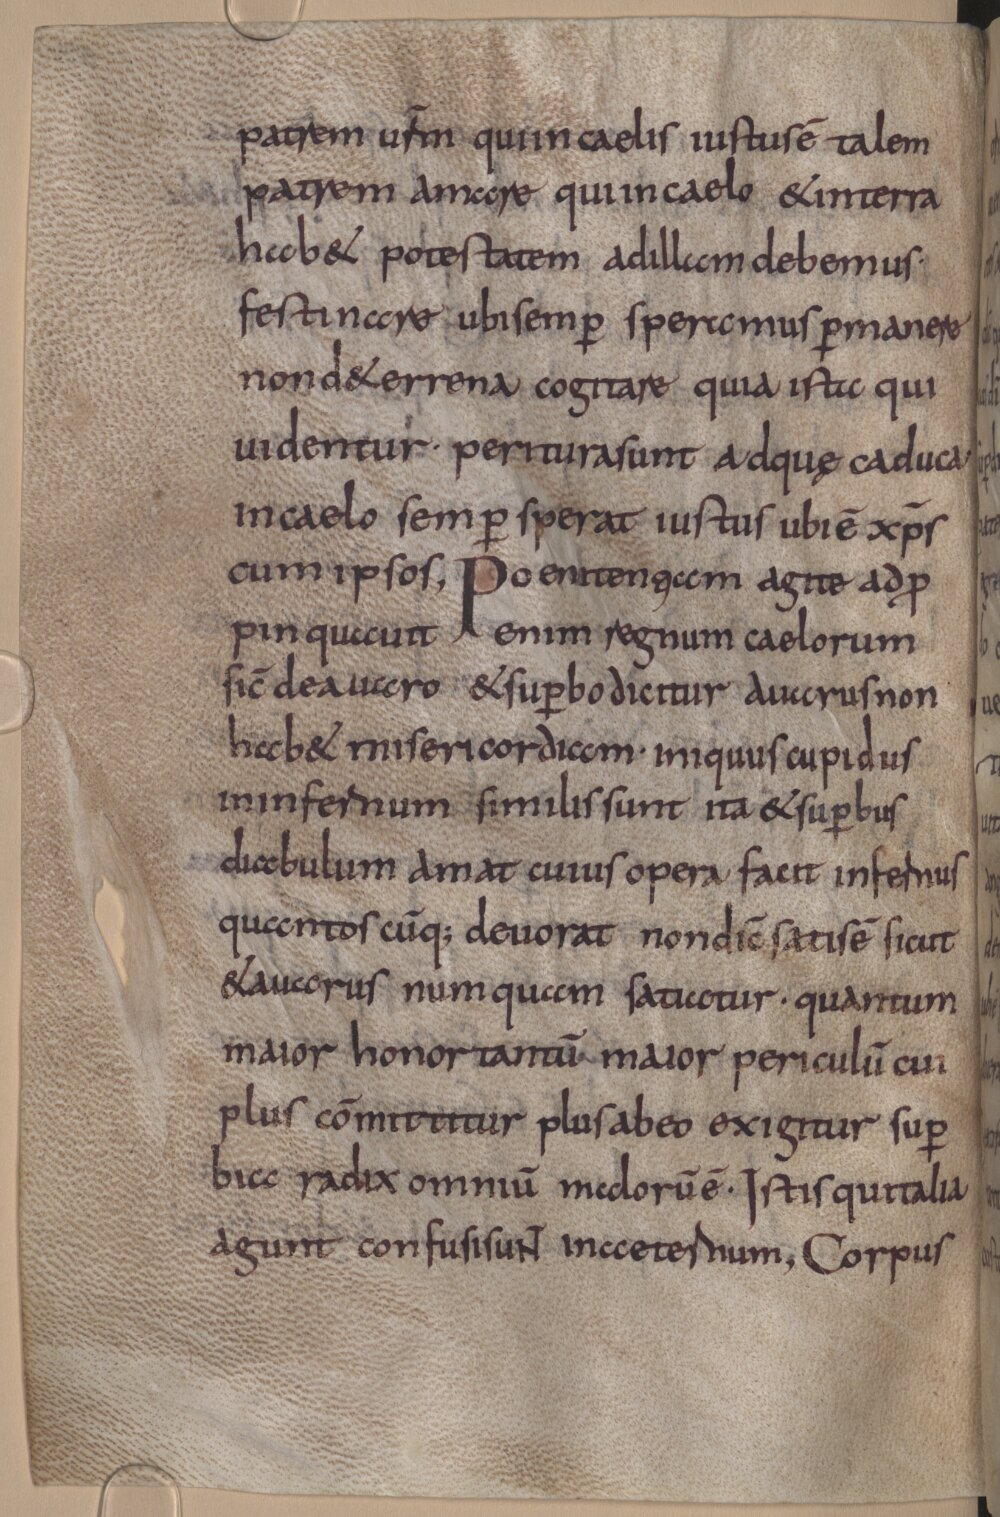 patrem ur̄m qui in caelis iustus ē talem
patrem amare qui in caelo & in terra
hab& potestatem ad illam debemus·
festinare ubi semꝑ speramus ꝑmanere
non d& errena cogitare quia ista qui
uidentur· peritura sunt adquę caduca·
in caelo semꝑ sperat iustus ubi ē xp̄s
cum ipsos, Poenitenciam agite adꝓ
pinquauit enim regnum caelorum
sic̄ de auaro & suꝑbo dicitur auarus non
hab& misericordiam· iniquus cupidus
in infernum similis sunt ita & suꝑbus
diabulum amat cuius opera facit infernus
quantoscūq; deuorat non dic̄ satis ē sicut
& auarus numquam satiatur· quantum
maior honor tantū maior periculū cui
plus cōmittitur plus ab eo exigitur suꝑ
bia radix omniū malorū ē· Istis qui talia
agunt confusi sunt in aeternum, Corpus